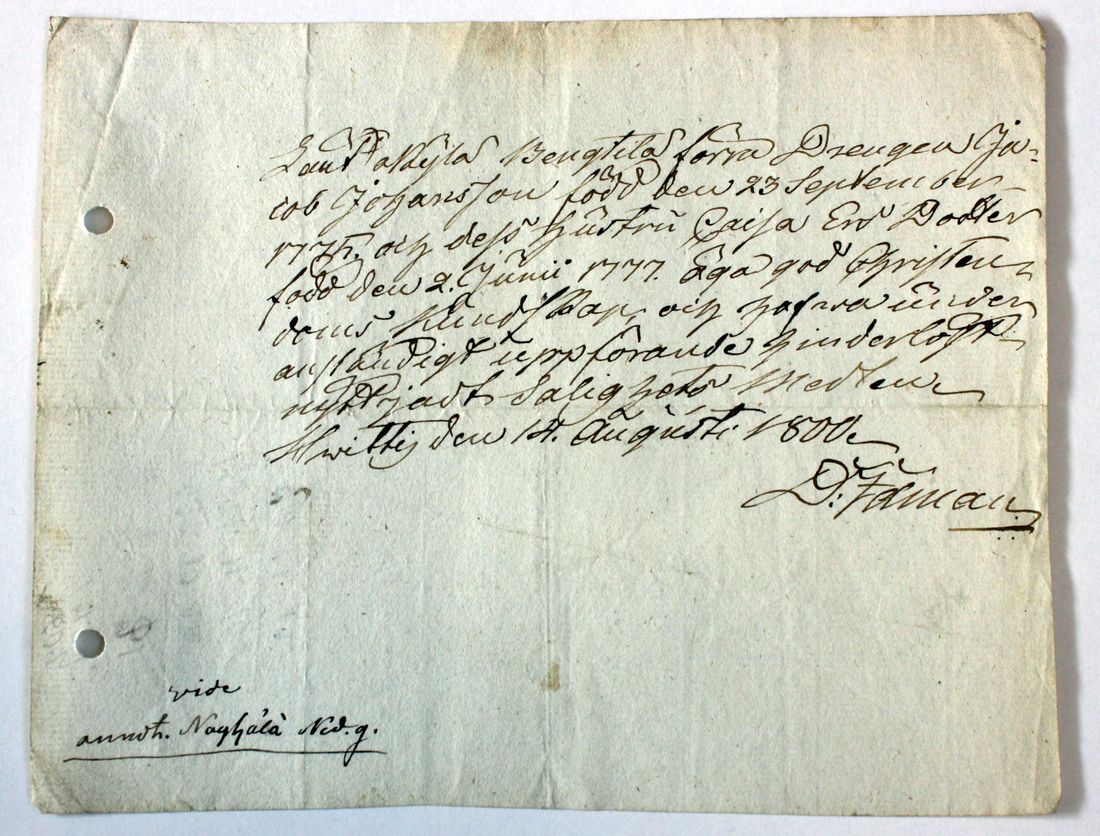 Bengtilä förra Drengen Ja-
cob Johansson född den 23 September
och dess Hustru Caisa Ers Dotter
född den 2. Junii 1777. äga god Christen-
doms Kundskap, och hafwa under
anständigt uppförande hinderlöst
nyttjadt Salighets Medlen
Hwittis den 14. Augusti 1800.
D:
vide
Ned. g.